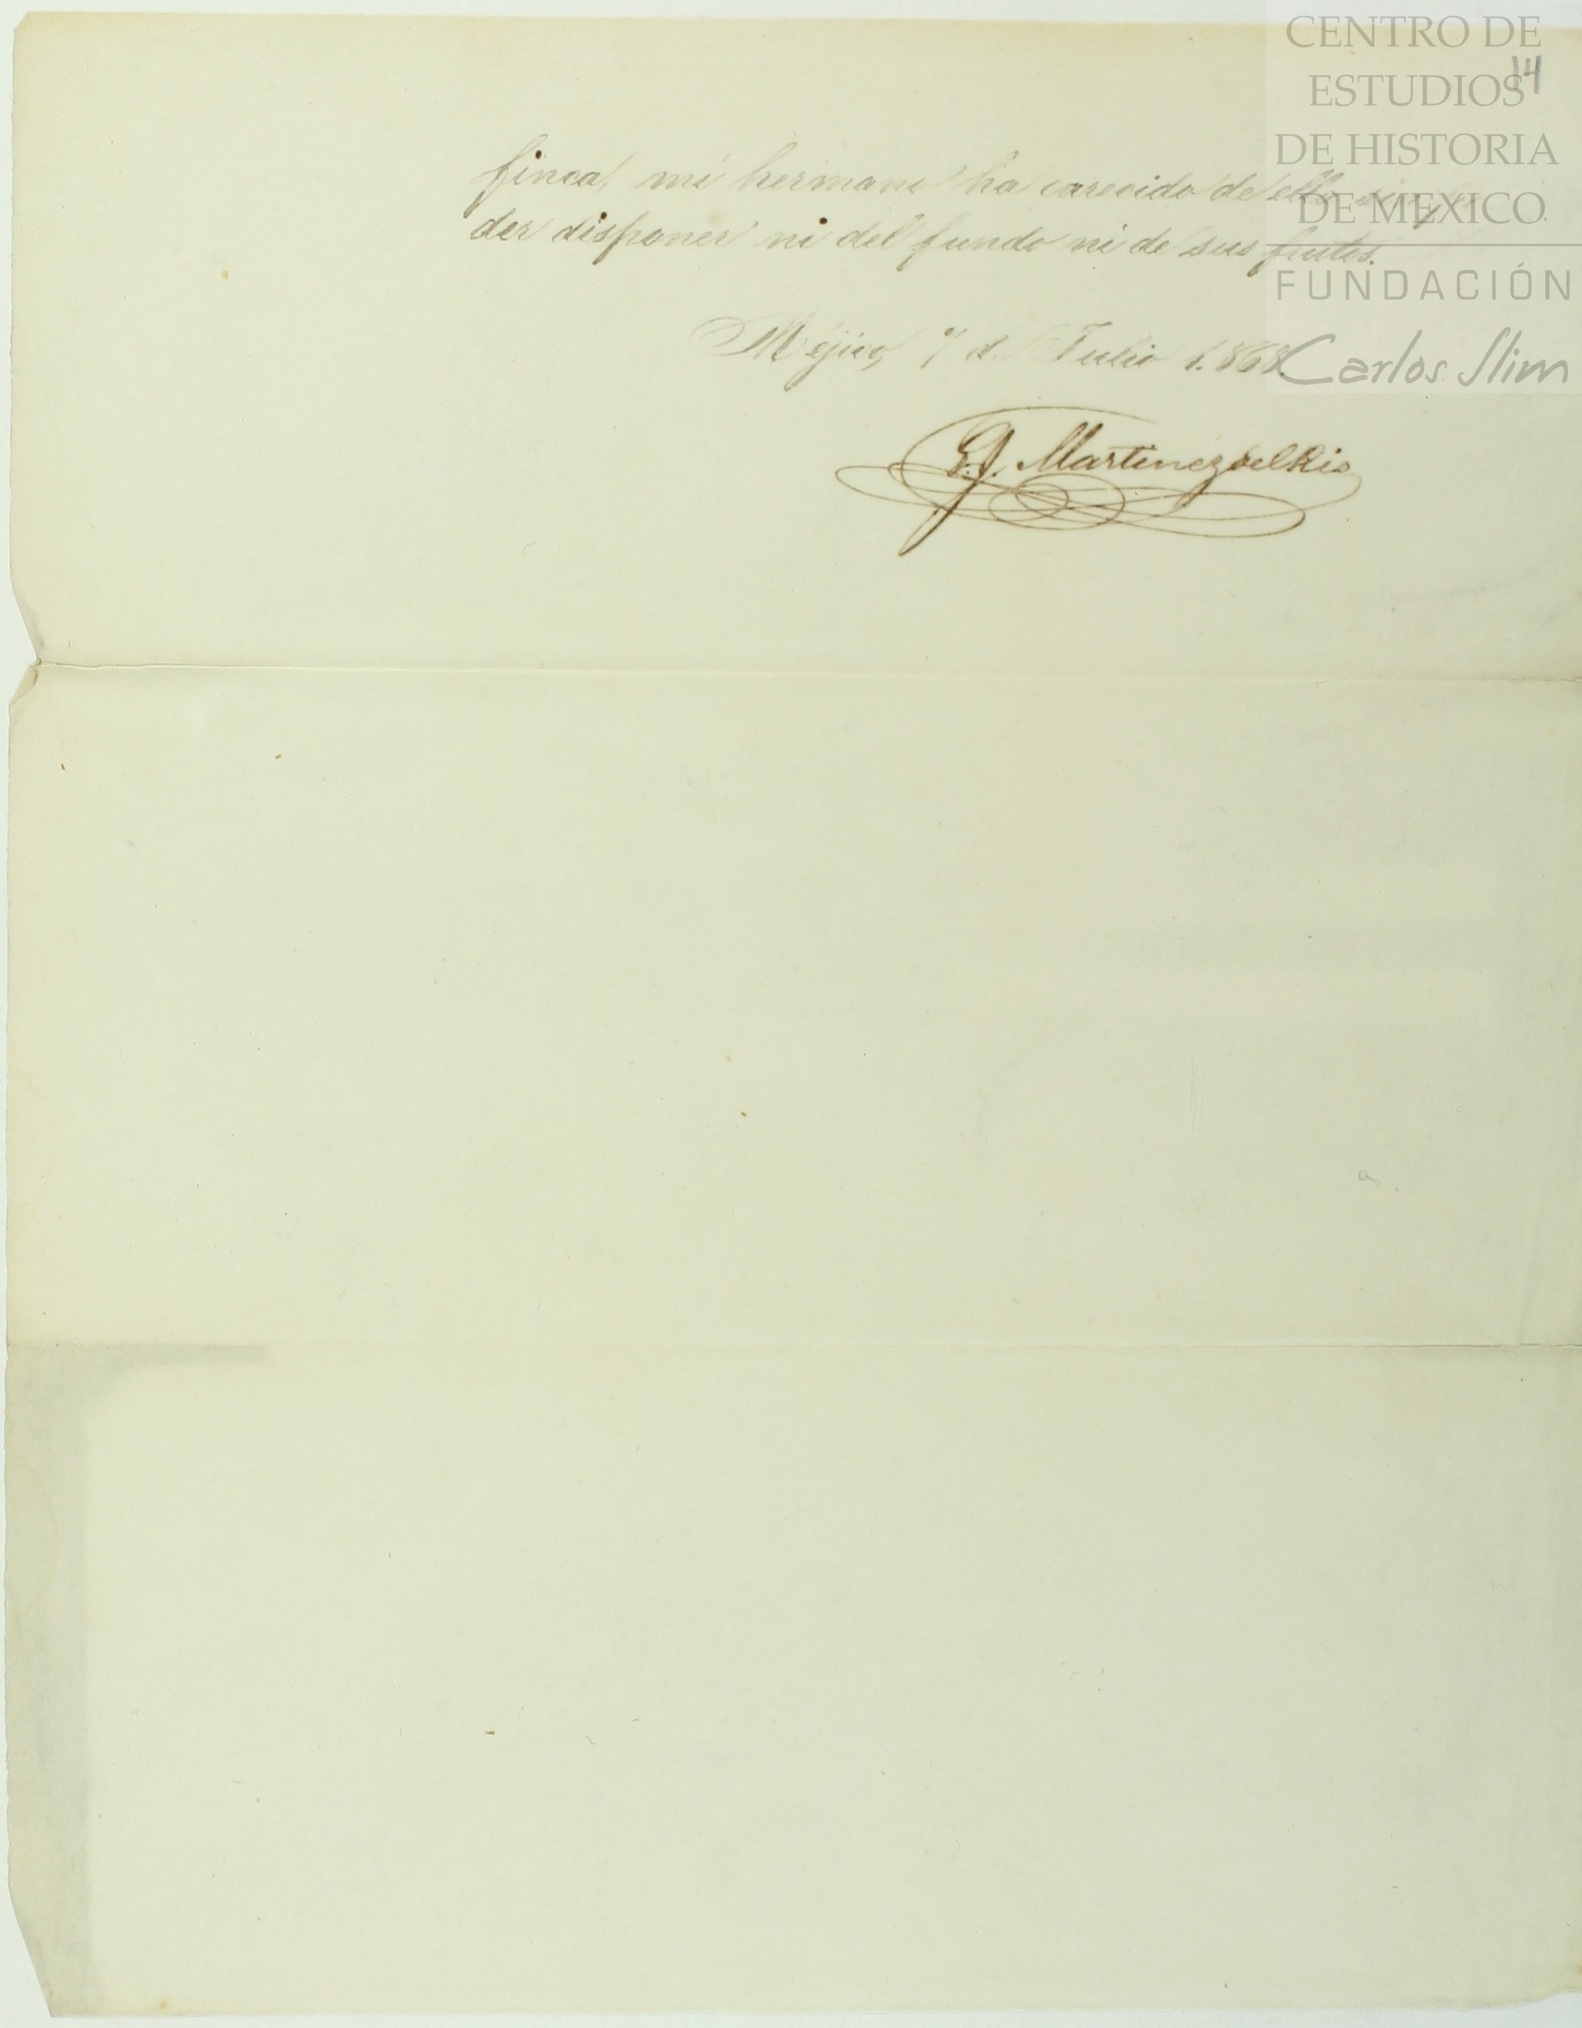 CENTRO DE
ESTUDIOS
14
DE HISTORIA
DE MEXICO.
FUNDACIÓN
Carlos Slim
finca, mi hermano ha carecido de ella sin po
der disponer ni del fundo ni de sus frutos.
Méjico, 7 de Julio 1.868.
G. Martinez del Rio